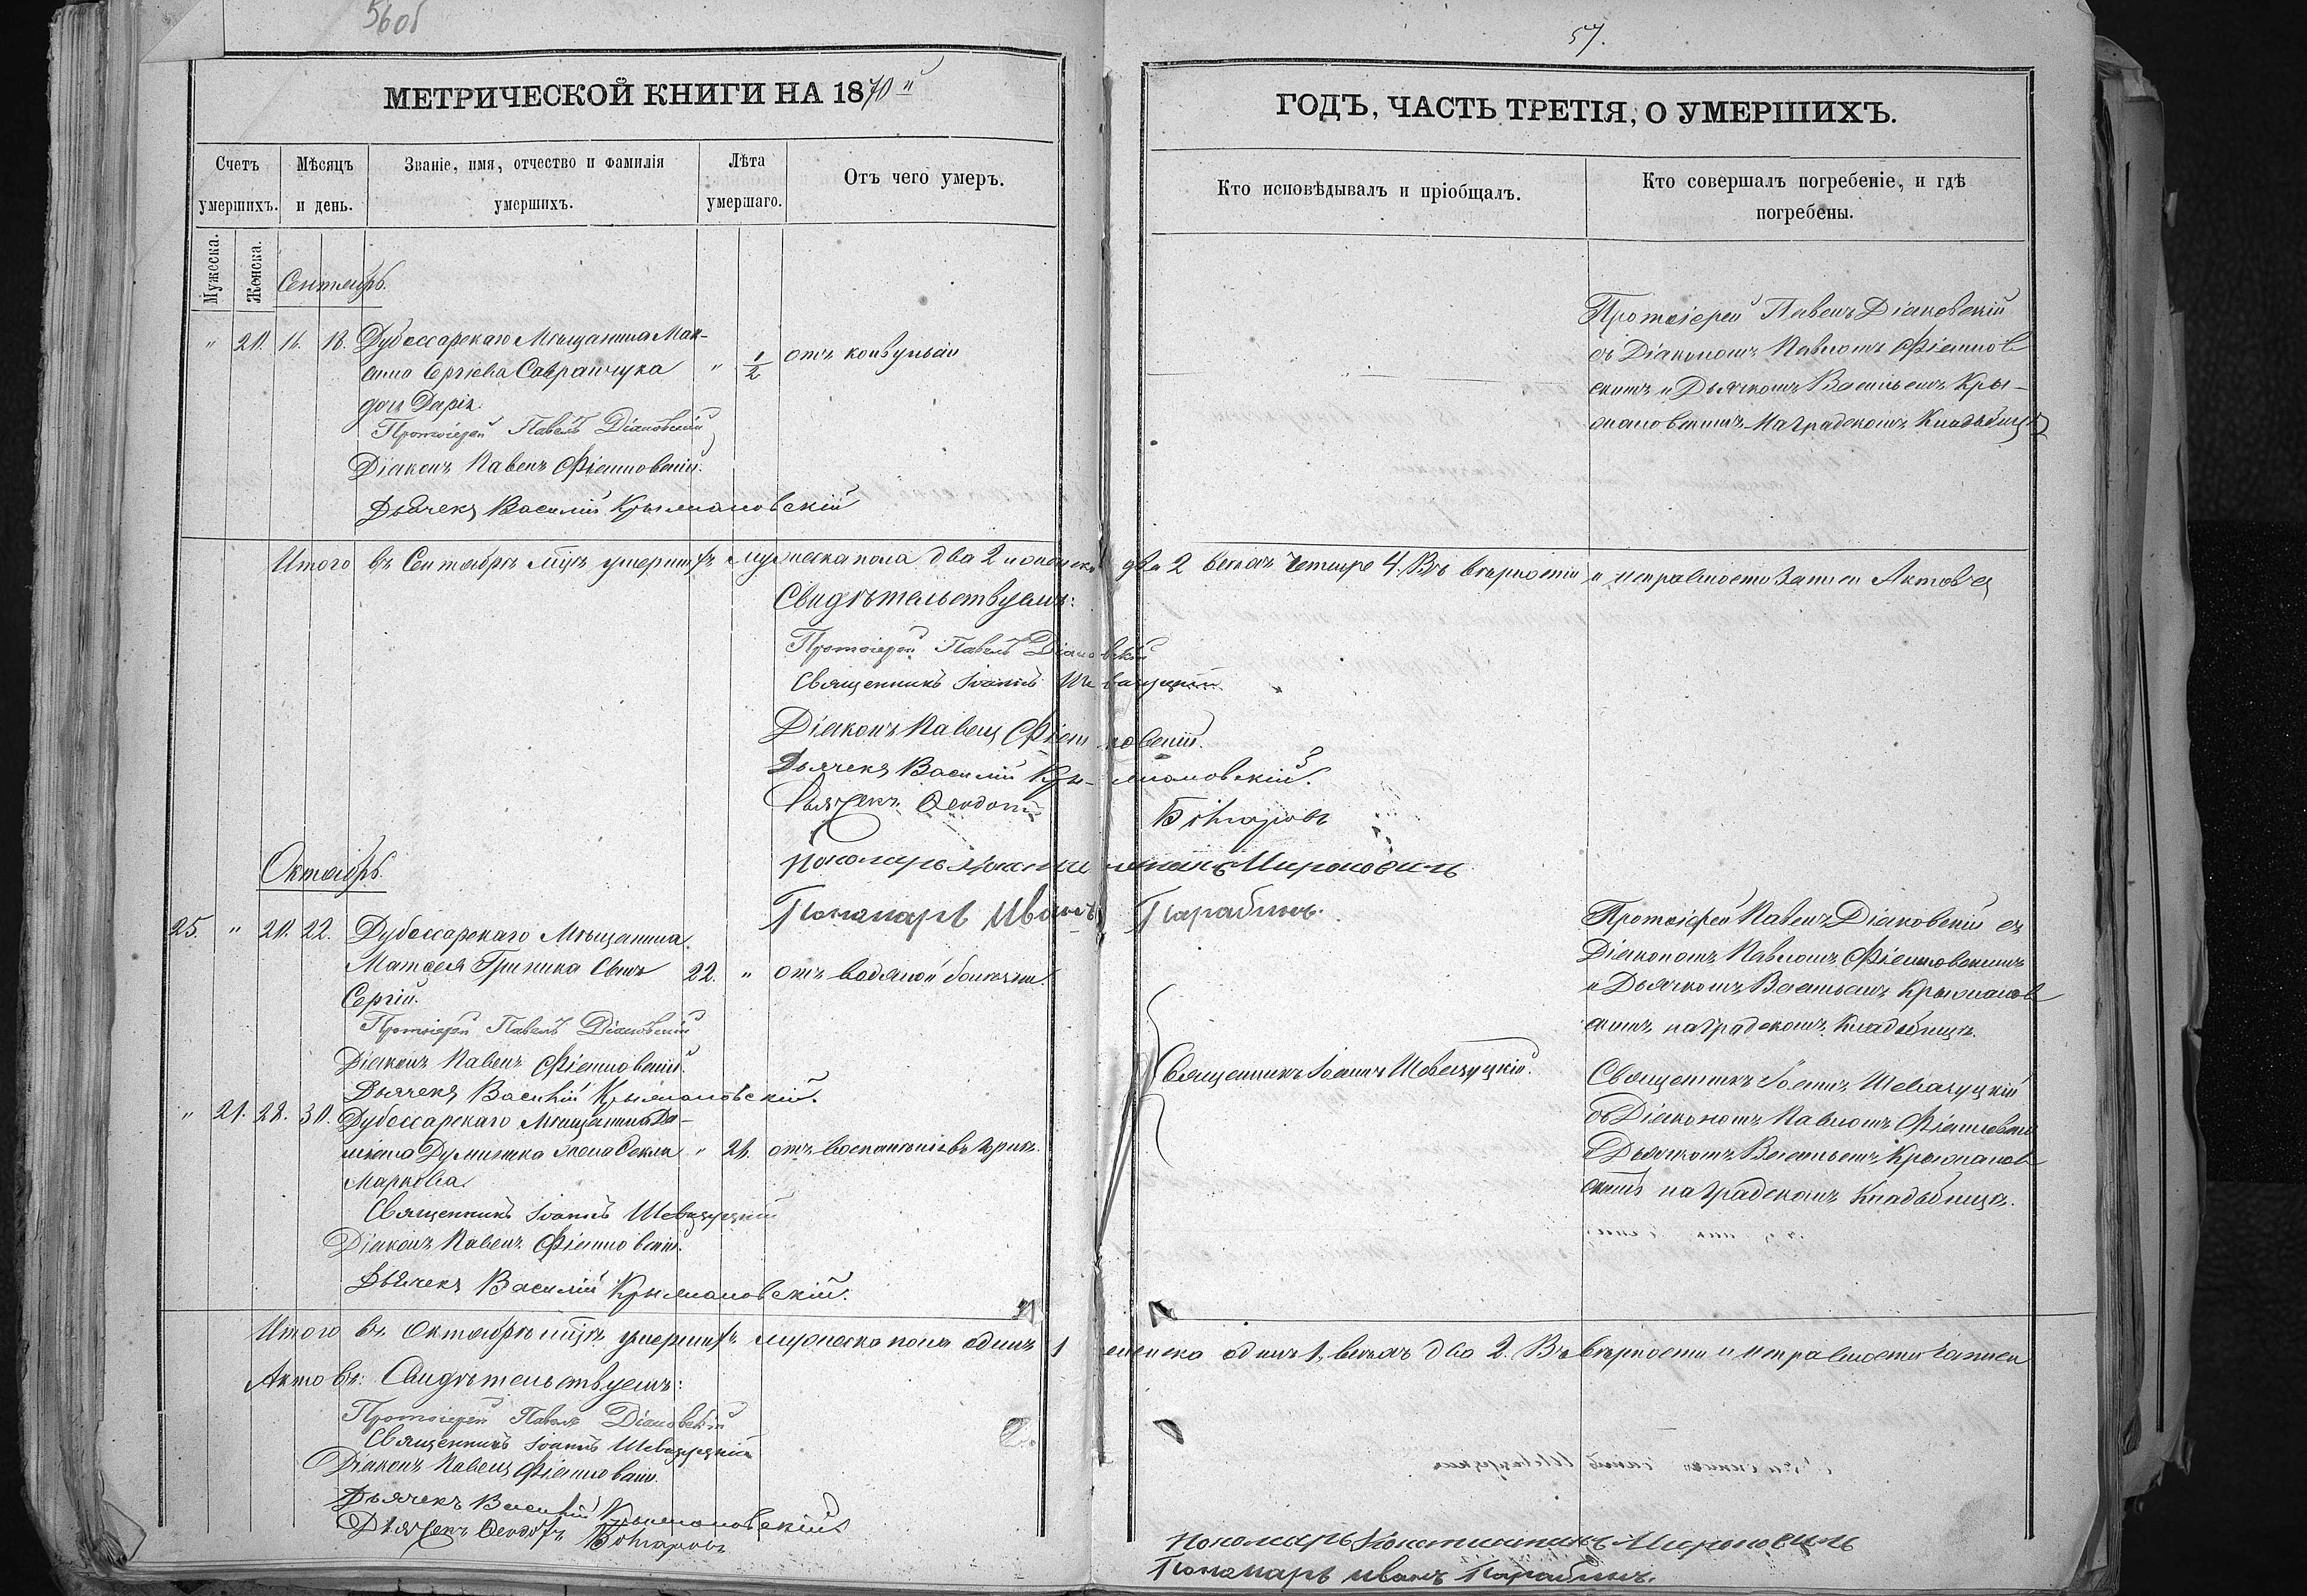 56об
МЕТРИЧЕСКОЙ КНИГИ НА 1870й
Счетъ умершихъ.
Мѣсяцъ и день.
Званіе, имя, отчество и фамилія умершихъ.
Лѣта умершаго.
Отъ чего умеръ.
Мужеска.
Женска.
Сентябрь.
" 20. 16. 18. Дубоссарскаго Мѣщанина Мак-
сима Сергіева Савранчука " 1/2 отъ конвульсіи
дочь Дарія.
Протоіерей Павелъ Діановскій
Діаконъ Павелъ
Дьячекъ Василій Крыжановскій
Итого въ Сентябрѣ м̃цѣ умершихъ мужеска пола два 2 женска
Свидѣтельствуемъ:
Протоіерей Павелъ Діановскій
Священникъ Іоаннъ Шевалуцкій
Діаконъ Павелъ
Дьячекъ Василій Крыжановскій.
Дьячекъ Феодотъ Бохаровъ
Пономарь Константинъ Мироновичъ
Пономарь Иванъ
Октябрь.
25. " 20. 22. Дубоссарскаго Мѣщанина
Матфея сынъ 22. " отъ водяной болѣзни.
Сергій.
Протоіерей Павелъ Діановскій
Діаконъ Павелъ
Дьячекъ Василій Крыжановскій.
" 21. 28. 30. Дубоссарскаго Мѣщанина
жена Фекла " отъ воспаленія въ
Маркова.
Священникъ Іоаннъ Шевалуцкій
Діаконъ Павелъ
Дьячекъ Василій Крыжановскій.
Итого въ Октябрѣ м̃цѣ умершихъ мужеска пола одинъ 1
Актовъ: Свидѣтельствуемъ:
Протоіерей Павелъ Діановскій
Священникъ Іоаннъ Шевалуцкій
Діаконъ Павелъ
Дьячекъ Василій Крыжановскій
Дьячекъ Феодотъ Бохаровъ
57.
ГОДЪ, ЧАСТЬ ТРЕТІЯ, О УМЕРШИХЪ.
Кто исповѣдывалъ и пріобщалъ.
Кто совершалъ погребеніе, и гдѣ погребены.
Протоіерей Павелъ Діановскій
съ Діакономъ Павломъ
скимъ и Дьячкомъ Васильемъ Кры-
жановскимъ на градскомъ кладбищѣ
два 2 всѣхъ четыре 4. Въ вѣрности и исправности записи Актовъ
Протоіерей Павелъ Діановскій съ
Діакономъ Павломъ
и Дьячкомъ Васильемъ Крыжанов
скимъ на градскомъ кладбищѣ.
Священникъ Іоаннъ Шевалуцкій.
Священникъ Іоаннъ Шевалуцкій
съ Діакономъ Павломъ
Дьячкомъ Васильемъ Крыжанов
скимъ на градскомъ кладбищѣ.
женска одна 1, всѣхъ два 2. Въ вѣрности и исправности записи
Пономарь Константинъ Мироновичъ
Пономарь Иванъ